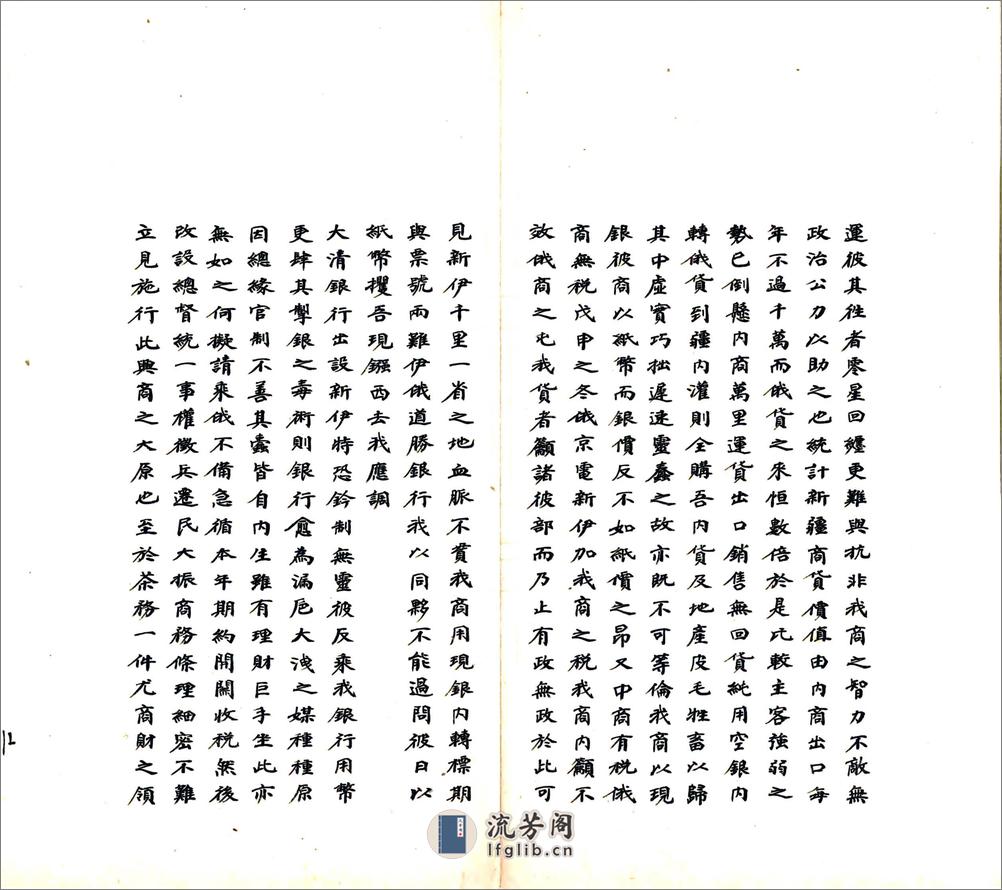 運彼其徃者零星回纏更難與抗非我商之智力不敵無
政治公力以助之也統計新疆商貨價值由內商出口每
年不過千萬而俄貨之來恒數倍於是比較主客強弱之
勢已倒懸內商萬里運貨出口銷售無回貨純用空銀內
轉俄貨到疆內灌則全購吾內貨及地產皮毛牲畜以歸
其中虛實巧拙遲速靈蠢之故亦旣不可等倫我商以現
銀彼商以紙幣而銀價反不如紙價之昂又中商有稅俄
商無稅戊申之冬俄京電新伊加我商之稅我商內籲不
效俄商之屯我貨者籲諸彼部而乃止有政無政於此可
見新伊千里一省之地血脈不貫我商用現銀內轉標期
與票號兩難伊俄道勝銀行我以同夥不能過問彼日以
紙幣攫吾現鏹西去我應調
大清銀行出設新伊特恐鈐制無靈彼反乘我銀行用幣
更肆其掣銀之毒術則銀行愈為漏巵大洩之媒種種原
因總緣官制不善其蠹皆自內生雖有理財巨手坐此亦
無如之何擬請乘俄不備急循本年期約開關收稅然後
改設總督統一事權徵兵遷民大振商務條理細密不難
立見施行此興商之大原也至於茶務一件尤商財之領
12
流芳阁
lfglib.cn